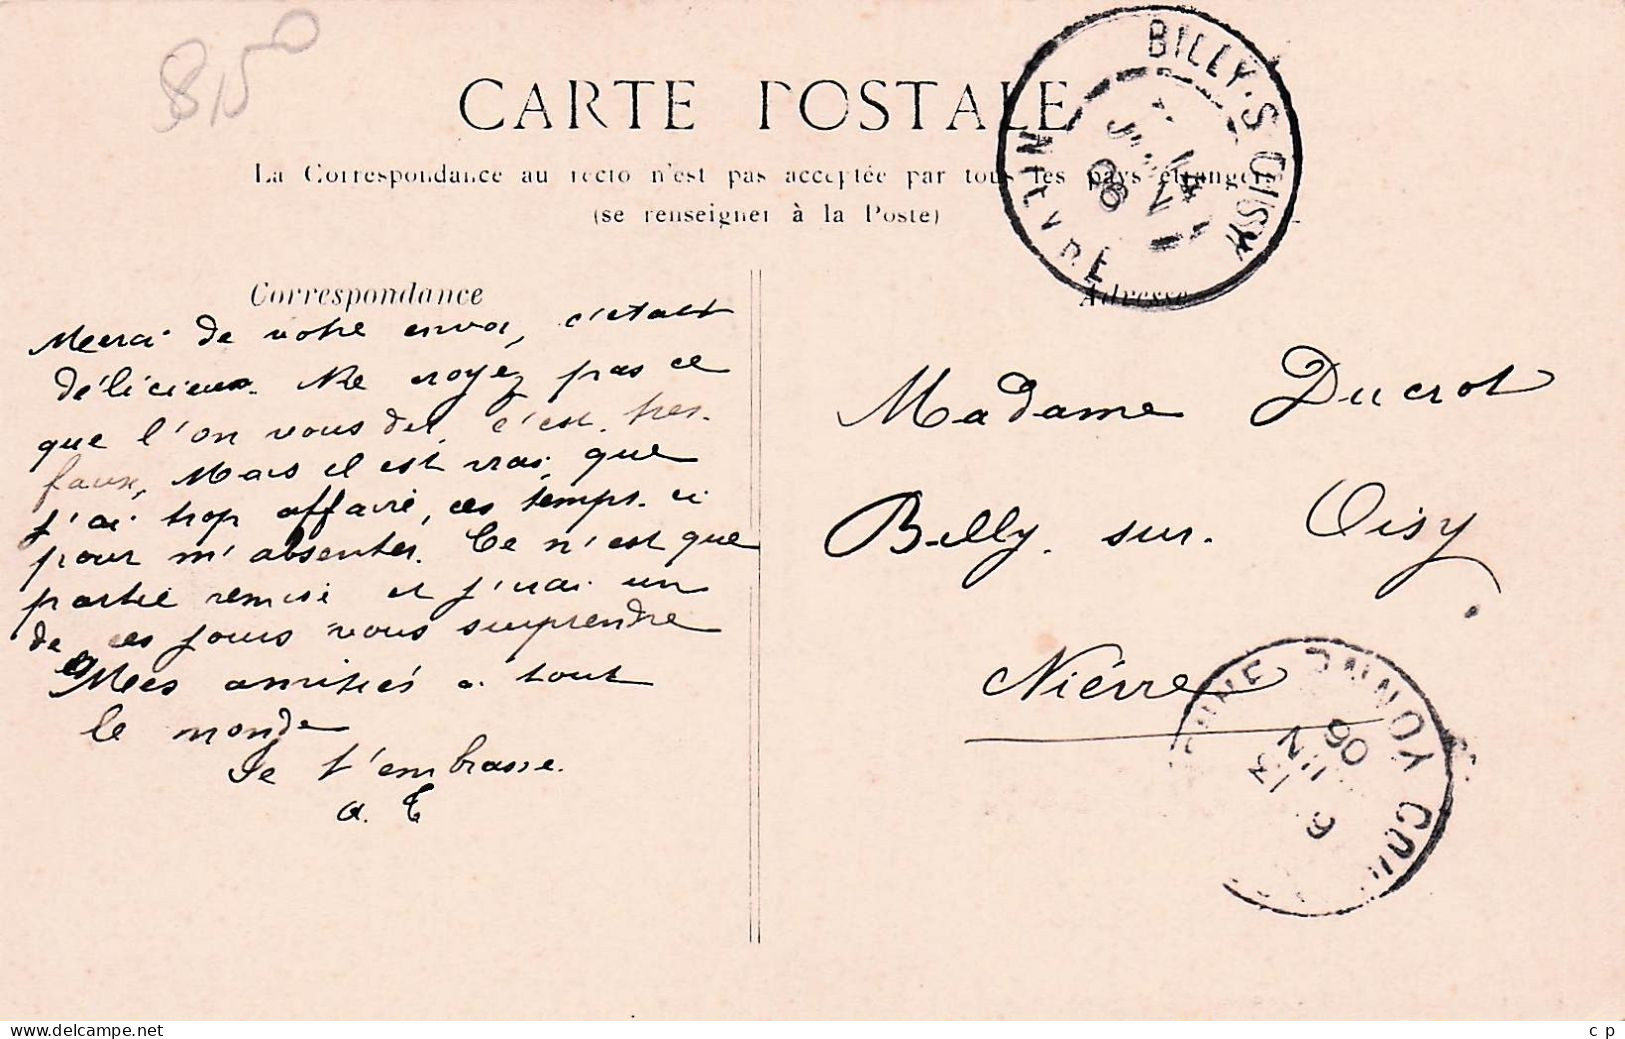 8,50
CARTE POSTALE
La Correspondance au recto n'est pas acceptée par tous les pays étrangers
(se renseigner à la Poste)
BILLY-S-OISY
NIÈVRE
14
06
Correspondance
Merci de votre envoi, c'était
délicieux. Ne croyez pas ce
que l'on vous dit, c'est très
faux, Mais il est vrai que
j'ai trop affaire, ces temps-ci
pour m'absenter. Ce n'est que
partie remise et j'irai un
de ces jours vous surprendre
Mes amitiés à tout
le monde
Je t'embrasse.
a. T
Adresse
Madame Ducrot
Billy sur Oisy
Nièvre
06
13
www.delcampe.net
c p